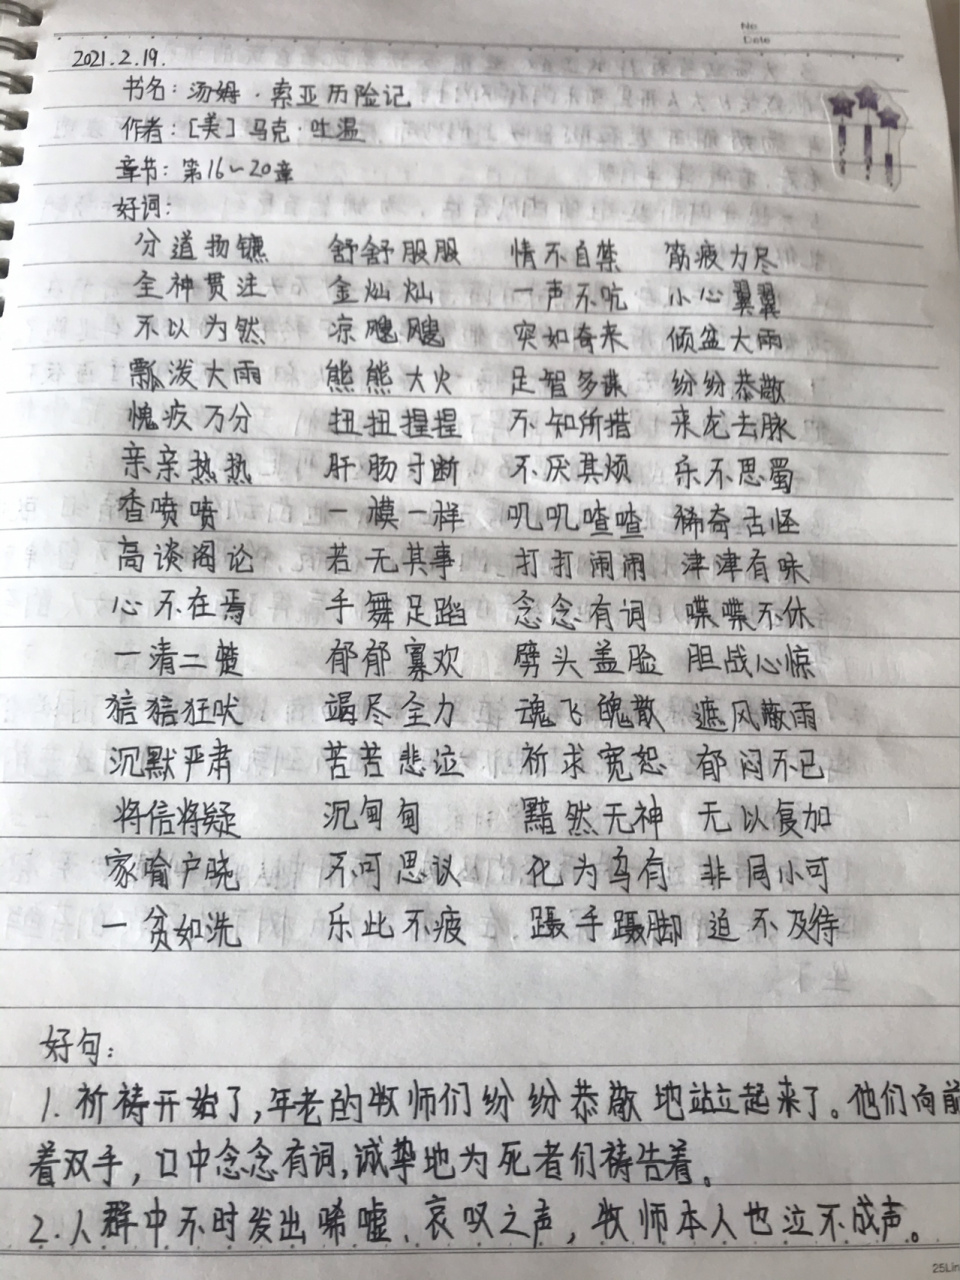 No
Date
2021.2.19.
书名：汤姆·索亚历险记
作者：[美]马克·吐温
章节：第16~20章
好词：
分道扬镳 舒舒服服 情不自禁 筋疲力尽
全神贯注 金灿灿 一声不吭 小心翼翼
不以为然 凉飕飕 突如奇来 倾盆大雨
瓢泼大雨 熊熊大火 足智多谋 纷纷恭敬
愧疚万分 扭扭捏捏 不知所措 来龙去脉
亲亲热热 肝肠寸断 不厌其烦 乐不思蜀
香喷喷 一模一样 叽叽喳喳 稀奇古怪
高谈阔论 若无其事 打打闹闹 津津有味
心不在焉 手舞足蹈 念念有词 喋喋不休
一清二楚 郁郁寡欢 劈头盖脸 胆战心惊
狺狺狂吠 竭尽全力 魂飞魄散 遮风蔽雨
沉默严肃 苦苦悲泣 祈求宽恕 郁闷不已
将信将疑 沉甸甸 黯然无神 无以复加
家喻户晓 不可思议 化为乌有 非同小可
一贫如洗 乐此不疲 蹑手蹑脚 迫不及待
好句：
1. 祈祷开始了,年老的牧师们纷纷恭敬地站立起来了。他们向前
着双手，口中念念有词,诚挚地为死者们祷告着。
2.人群中不时发出唏嘘、哀叹之声，牧师本人也泣不成声。